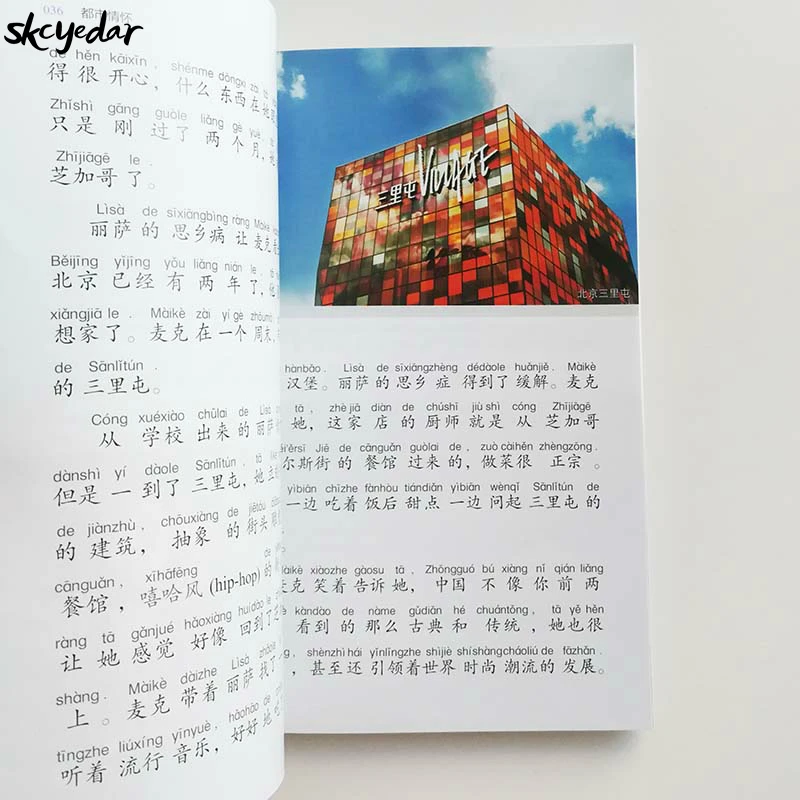 skcyedar
036 都市情怀
de hěn kāixīn, shénme dōngxi zài
得 很 开心, 什么 东西 在 她
Zhǐshì gāng guòle liǎng gè yuè
只是 刚 过了 两 个 月,
Zhījiāgē le.
芝加哥 了。
Lìsà de sīxiāngbìng ràng Màikè
丽萨 的 思乡病 让 麦克
Běijīng yǐjīng yǒu liǎng nián le,
北京 已经 有 两 年 了,
xiǎngjiā le. Màikè zài yí gè zhōumò,
想家 了。 麦克 在 一个 周末,
de Sānlǐtún.
的 三里屯。
Cóng xuéxiào chūlai de Lìsà
从 学校 出来 的 丽萨
dànshì yí dàole Sānlǐtún,
但是 一 到了 三里屯, 她 立
de jiànzhù, chōuxiàng de jiētóu
的 建筑, 抽象 的 街头
cānguǎn, xīhāfēng de
餐馆, 嘻哈风 (hip-hop) 的
ràng tā gǎnjué hǎoxiàng huídào le
让 她 感觉 好像 回到 了
shàng. Màikè dàizhe Lìsà zhǎole
上。 麦克 带着 丽萨 找了
tīngzhe liúxíng yīnyuè, hǎohāo de
听着 流行 音乐, 好好 地
三里屯 VILLAGE
北京三里屯
hànbǎo. Lìsà de sīxiāngzhèng dédàole huǎnjiě. Màikè
汉堡。 丽萨 的 思乡 症 得到了 缓解。 麦克
tā, zhè jiā diàn de chúshī jiù shì cóng Zhījiāgē
她, 这家 店 的 厨师 就是 从 芝加哥
ěrsī Jiē de cānguǎn guòlai de, zuò cài hěn zhèngzōng.
尔斯街 的 餐馆 过来 的, 做菜 很 正宗。
yìbiān chīzhe fànhòu tiándiǎn yìbiān wènqǐ Sānlǐtún de
一边 吃着 饭后 甜点 一边 问起 三里屯 的
Màikè xiàozhe gàosu tā, Zhōngguó bú xiàng nǐ qián liǎng
麦克 笑着 告诉 她, 中国 不像 你 前 两
kàndào de nàme gǔdiǎn hé chuántǒng, tā yě hěn
看到 的 那么 古典 和 传统, 她 也 很
shènzhì hái yǐnlǐngzhe shìjiè shíshàng cháoliú de fāzhǎn.
, 甚至 还 引领着 世界 时尚 潮流 的 发展。